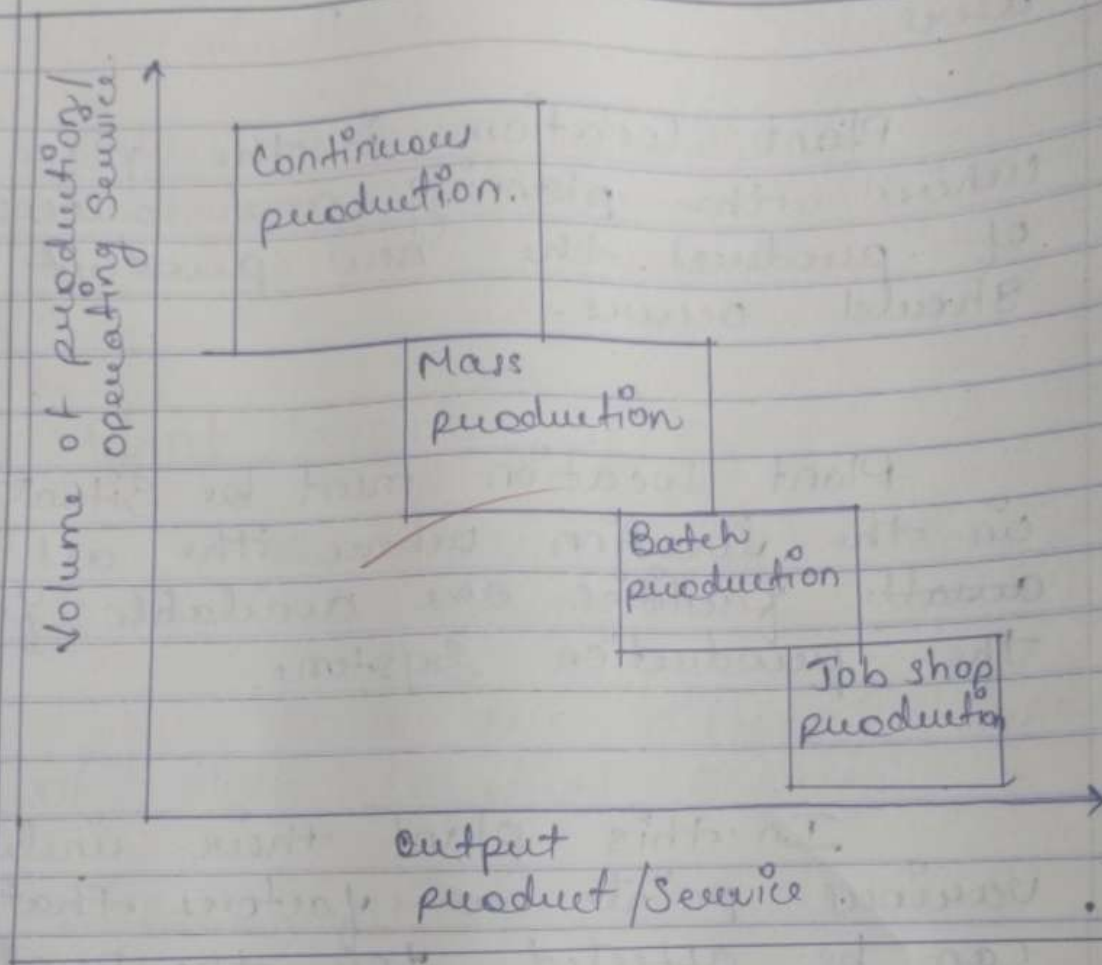 Volume of production/
operating Service.
Continuous
production.
Mass
production
Batch
production
Job shop
production
output
product/Service